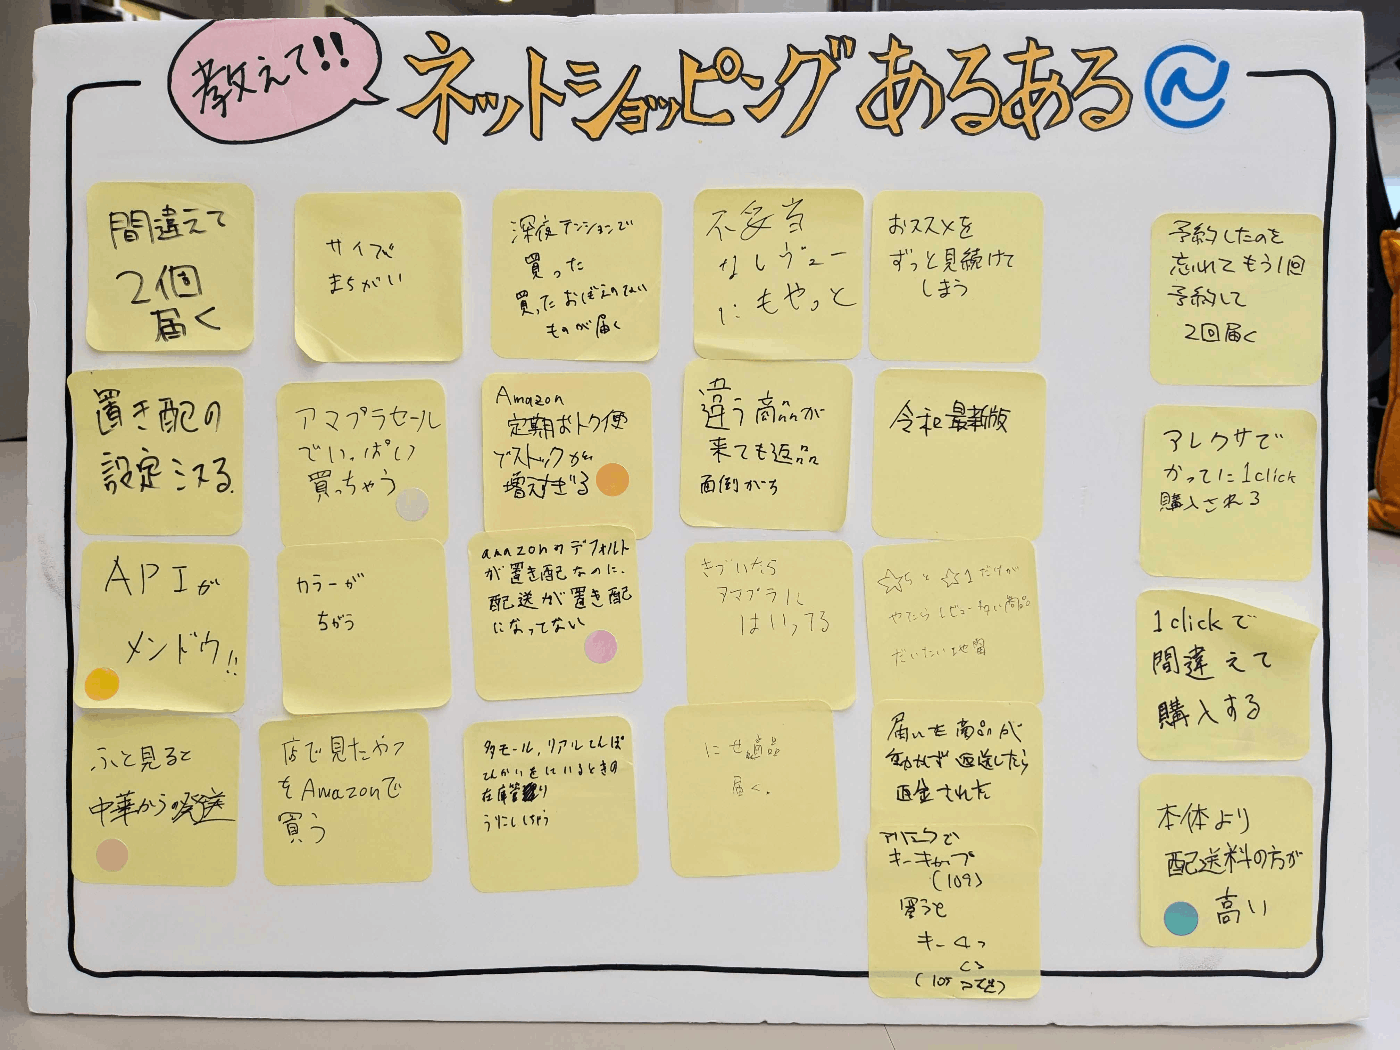 教えて!!
ネットショッピングあるある
間違えて
2個
届く
サイズ
まちがい
深夜テンションで
買った
買ったおぼえのない
ものが届く
不妥当
なレヴュー
にもやっと
おススメを
ずっと見続けて
しまう
予約したのを
忘れてもう1回
予約して
2回届く
置き配の
設定ミスる
アマプラセール
でいっぱい
買っちゃう
Amazon
定期おトク便
でストックが
増えすぎる
違う商品が
来ても返品
面倒がち
令和最新版
アレクサで
かってに1click
購入される
APIが
メンドウ!!
カラーが
ちがう
amazonのデフォルト
が置き配なのに、
配送が置き配
になってない
きづいたら
アマプラに
はいってる
☆5と☆1だけが
やたらレビュー多い商品
だいたい地雷
1clickで
間違えて
購入する
ふと見ると
中華からの発送
店で見たやつ
をAmazonで
買う
多モール、リアルてんぽ
てんかいをしているときの
在庫管理
うりこしちゃう
にせ商品
届く.
届いた商品が
動かず返送したら
返金された
本体より
配送料の方が
高い
キーキャップ
(109)
買うと